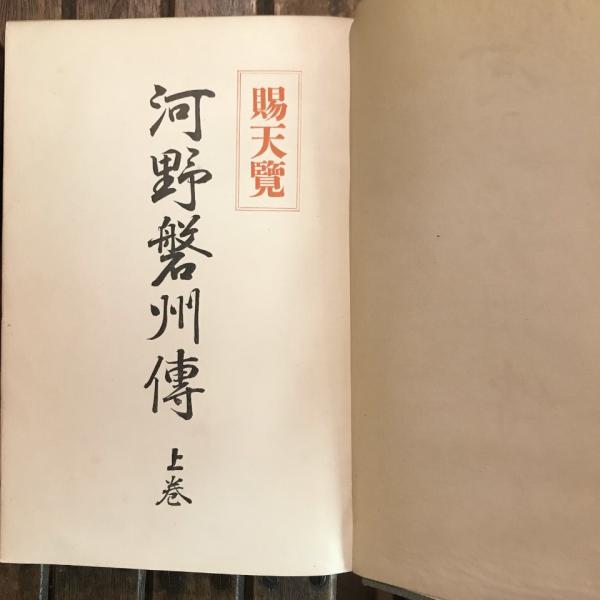 賜天覽
河野磐州傳
上巻